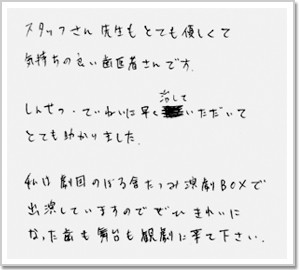 スタッフさん 先生も とても優しくて
気持ちの良い歯医者さんです.
しんせつ・ていねいに早く治していただいて
とても助かりました.
私は劇団のぼる舎たつみ演劇BOXで
出演していますので ぜひ きれいに
なった歯も舞台も観劇に来て下さい.